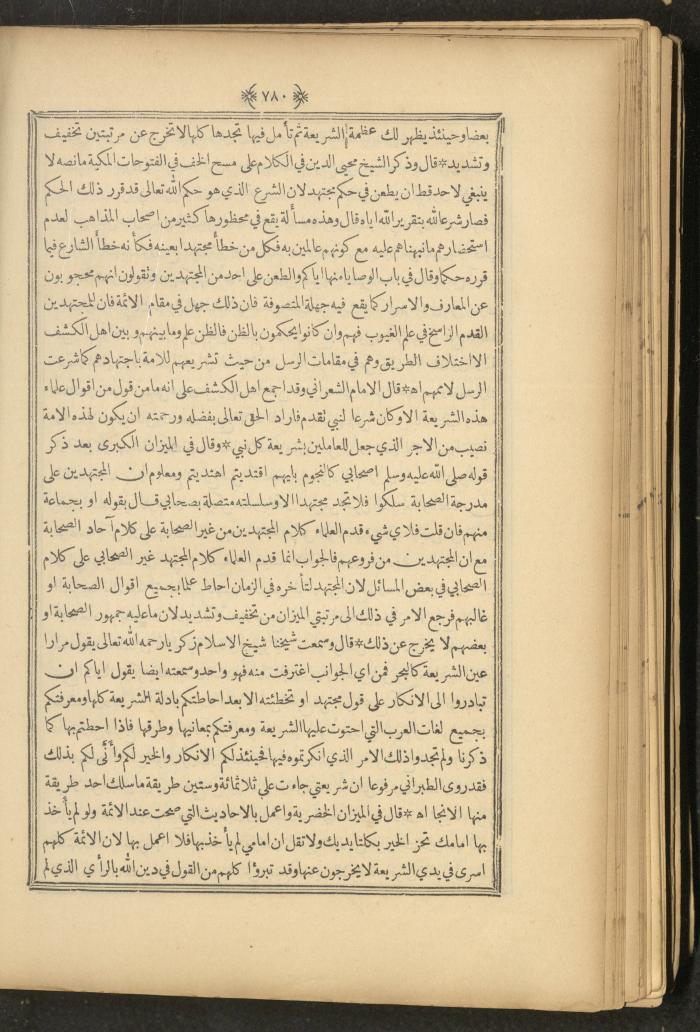 ﴿٧٨٠﴾
بعضا وحينئذ يظهر لك عظمة الشريعة ثم تأمل فيها تجدها كلها لا تخرج عن مرتبتين تخفيف
وتشديد * قال وذكر الشيخ محيي الدين في الكلام على مسح الخف في الفتوحات المكية ما نصه لا
ينبغي لاحد قط ان يطعن في حكم مجتهد لان الشرع الذي هو حكم الله تعالى قد قرر ذلك الحكم
فصار شرعا لله بتقرير الله اياه قال وهذه مسألة يقع في محظورها كثير من اصحاب المذاهب لعدم
استحضارهم ما نبهناهم عليه مع كونهم عالمين به فكل من خطأ مجتهدا بعينه فكأنه خطأ الشارع فيما
قرره حكما وقال في باب الوصايا منها اياكم والطعن على احد من المجتهدين وتقولون انهم محجوبون
عن المعارف والاسرار كما يقع فيه جهلة المتصوفة فان ذلك جهل في مقام الائمة فان للمجتهدين
القدم الراسخ في علم الغيوب فهم وان كانوا يحكمون بالظن فالظن علم وما بينهم وبين اهل الكشف
الا اختلاف الطريق وهم في مقامات الرسل من حيث تشريعهم للامة باجتهادهم كما شرعت
الرسل لاممهم اه * قال الامام الشعراني وقد اجمع اهل الكشف على انه ما من قول من اقوال علماء
هذه الشريعة الا وكان شرعا لنبي تقدم فاراد الحق تعالى بفضله ورحمته ان يكون لهذه الامة
نصيب من الاجر الذي جعل للعاملين بشريعة كل نبي * وقال في الميزان الكبرى بعد ذكر
قوله صلى الله عليه وسلم اصحابي كالنجوم بايهم اقتديتم اهتديتم ومعلوم ان المجتهدين على
مدرجة الصحابة سلكوا فلا تجد مجتهدا الا وسلسلته متصلة بصحابي قال بقوله او بجماعة
منهم فان قلت فلاي شيء قدم العلماء كلام المجتهدين من غير الصحابة على كلام آحاد الصحابة
مع ان المجتهدين من فروعهم فالجواب انما قدم العلماء كلام المجتهد غير الصحابي على كلام
الصحابي في بعض المسائل لان المجتهد لتأخره في الزمان احاط علما بجميع اقوال الصحابة او
غالبهم فرجع الامر في ذلك الى مرتبتي الميزان من تخفيف وتشديد لان ما عليه جمهور الصحابة او
بعضهم لا يخرج عن ذلك * قال وسمعت شيخنا شيخ الاسلام زكريا رحمه الله تعالى يقول مرارا
عين الشريعة كالبحر فمن اي الجوانب اغترفت منه فهو واحد وسمعته ايضا يقول اياكم ان
تبادروا الى الانكار على قول مجتهد او تخطئته الا بعد احاطتكم بادلة الشريعة كلها ومعرفتكم
بجميع لغات العرب التي احتوت عليها الشريعة ومعرفتكم بمعانيها وطرقها فاذا احطتم بها كما
ذكرنا ولم تجدوا ذلك الامر الذي انكرتموه فيها فحينئذ لكم الانكار والخير لكم وأنَّى لكم بذلك
فقد روى الطبراني مرفوعا ان شريعتي جاءت على ثلاثمائة وستين طريقة ما سلك احد طريقة
منها الا نجا اه * قال في الميزان الخضرية واعمل بالاحاديث التي صحت عند الائمة ولو لم يأخذ
بها امامك تحز الخير بكلتا يديك ولا تقل ان امامي لم يأخذ بها فلا اعمل بها لان الائمة كلهم
اسرى في يدي الشريعة لا يخرجون عنها وقد تبرؤا كلهم من القول في دين الله بالرأي الذي لم